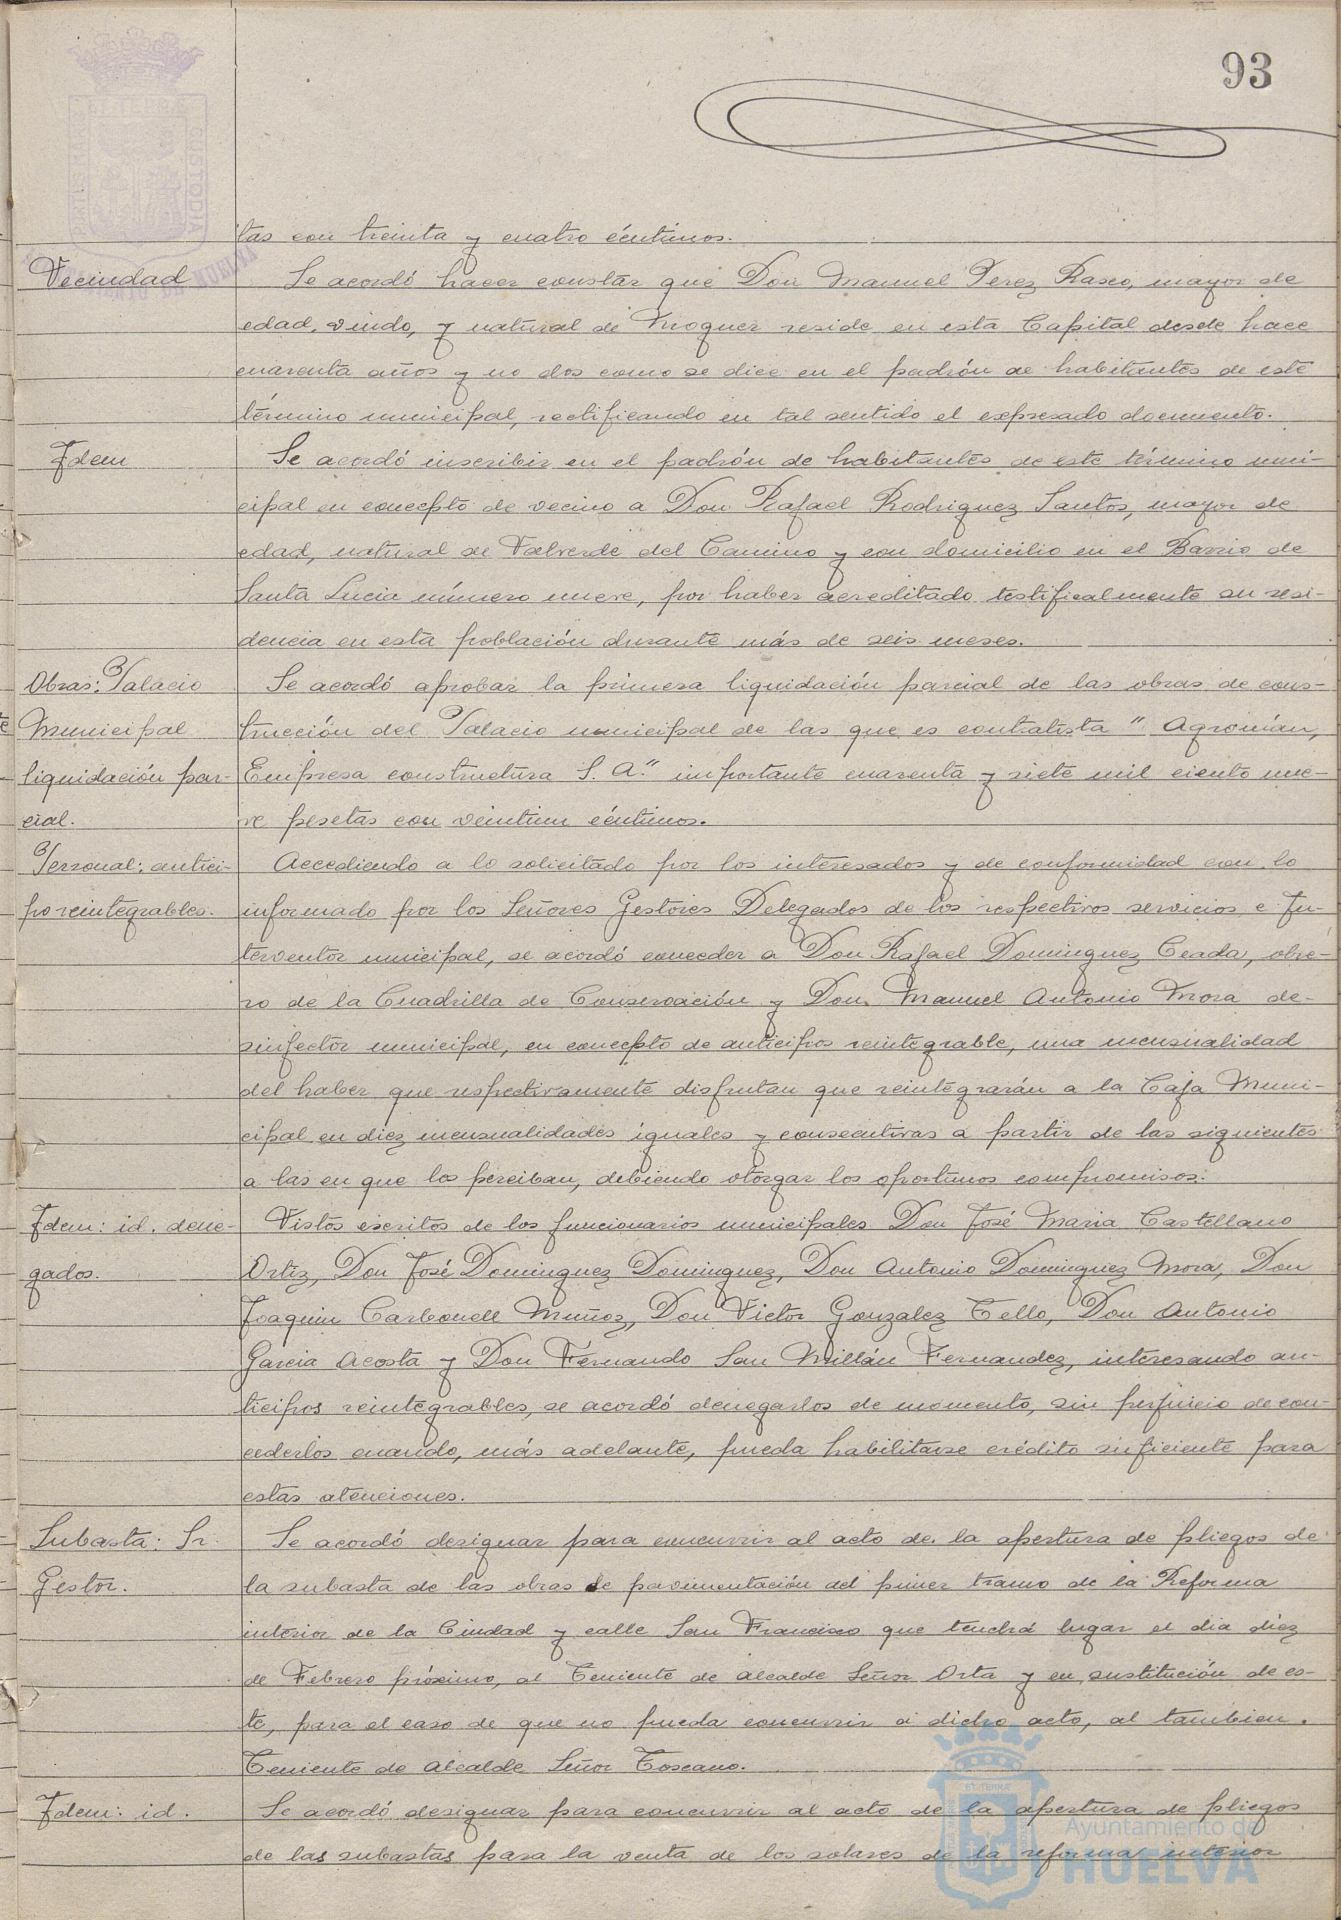 93
PORTUS MARIS ET TERRE CUSTODIA
tas con treinta y cuatro céntimos.
Vecindad
Se acordó hacer constar que Don Manuel Perez Rasco, mayor de
edad, viudo, y natural de Moguer reside en esta Capital desde hace
cuarenta años y no dos como se dice en el padrón de habitantes de este
término municipal, rectificando en tal sentido el expresado documento.
Idem
Se acordó inscribir en el padrón de habitantes de este término muni-
cipal en concepto de vecino a Don Rafael Rodriguez Santos, mayor de
edad, natural de Valverde del Camino y con domicilio en el Barrio de
Santa Lucia número nueve, por haber acreditado testificalmente su resi-
dencia en esta población durante más de seis meses.
Obras: Palacio
Municipal
liquidación par-
cial.
Se acordó aprobar la primera liquidación parcial de las obras de cons-
trucción del Palacio municipal de las que es contratista "Agromán,
Empresa constructura S. A." importante cuarenta y siete mil ciento nue-
ve pesetas con veintiun céntimos.
Personal: antici-
po reintegrables.
Accediendo a lo solicitado por los interesados y de conformidad con lo
informado por los Señores Gestores Delegados de los respectivos servicios e In-
terventor municipal, se acordó conceder a Don Rafael Dominguez Ceada, obre-
ro de la Cuadrilla de Conservación y Don Manuel Antonio Mora de-
sinfector municipal, en concepto de anticipos reintegrable, una mensualidad
del haber que respectivamente disfrutan que reintegrarán a la Caja Muni-
cipal en diez mensualidades iguales y consecutivas a partir de las siguientes
a las en que los perciban, debiendo otorgar los oportunos compromisos.
Idem: id. dene-
gados.
Vistos escritos de los funcionarios municipales Don José Maria Castellano
Ortiz, Don José Dominguez Dominguez, Don Antonio Dominguez Mora, Don
Joaquin Carbonell Muñoz, Don Victor Gonzalez Tello, Don Antonio
Garcia Acosta y Don Fernando San Millán Fernandez, interesando an-
ticipos reintegrables, se acordó denegarlos de momento, sin perjuicio de con-
cederlos cuando, más adelante, pueda habilitarse crédito suficiente para
estas atenciones.
Subasta: Sr.
Gestor.
Se acordó designar para concurrir al acto de la apertura de pliegos de
la subasta de las obras de pavimentación del primer tramo de la Reforma
interior de la Ciudad y calle San Francisco que tendrá lugar el dia diez
de Febrero próximo, al Teniente de Alcalde Señor Orta y en sustitución de es-
te, para el caso de que no pueda concurrir a dicho acto, al tambien
Teniente de Alcalde Señor Toscano.
Idem: id.
Se acordó designar para concurrir al acto de la apertura de pliegos
de las subastas para la venta de los solares de la reforma interior
Ayuntamiento de
HUELVA